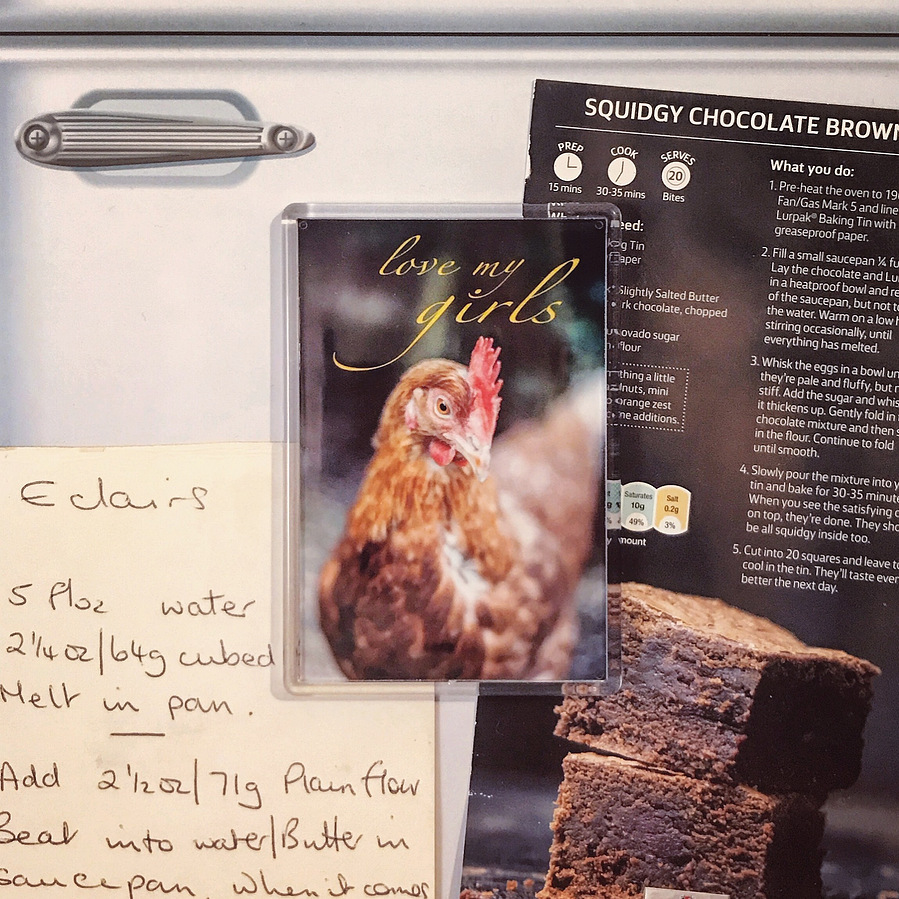 SQUIDGY CHOCOLATE BROWN
PREP
15 mins
COOK
30-35 mins
SERVES
20
Bites
eed:
Slightly Salted Butter
chocolate, chopped
sugar
flour
thing a little
mini
orange zest
additions.
Saturates
10g
49%
Salt
0.2g
3%
What you do:
1. Pre-heat the oven to 19
Fan/Gas Mark 5 and line
Lurpak® Baking Tin with
greaseproof paper.
2. Fill a small saucepan ¼ fu
Lay the chocolate and Lu
in a heatproof bowl and re
of the saucepan, but not to
the water. Warm on a low h
stirring occasionally, until
everything has melted.
3. Whisk the eggs in a bowl un
they're pale and fluffy, but n
stiff. Add the sugar and whis
it thickens up. Gently fold in
chocolate mixture and then s
in the flour. Continue to fold
until smooth.
4. Slowly pour the mixture into y
tin and bake for 30-35 minute
When you see the satisfying c
on top, they're done. They sho
be all squidgy inside too.
5. Cut into 20 squares and leave to
cool in the tin. They'll taste even
better the next day.
love my
girls
Eclairs
5 floz water
2¼oz/64g cubed
Melt in pan.
Add 2½oz/71g Plain flour
Beat into water/Butter in
Saucepan, when it comes